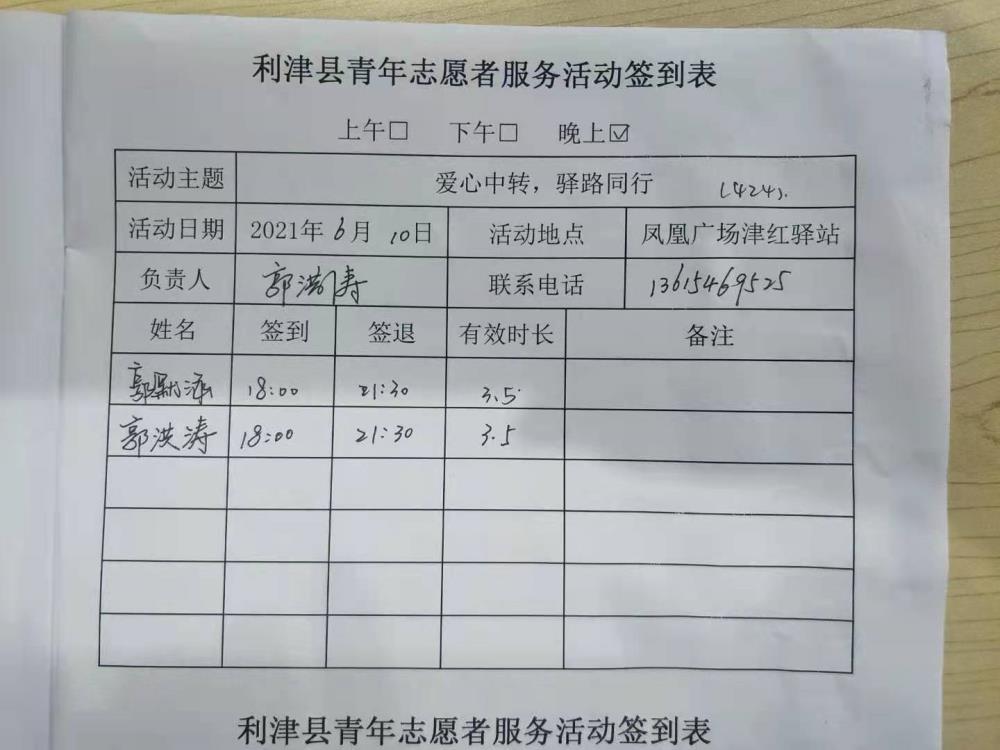 利津县青年志愿者服务活动签到表
上午□ 下午□ 晚上☑
活动主题 爱心中转，驿路同行 (424).
活动日期 2021年6月10日 活动地点 凤凰广场津红驿站
负责人 郭洪涛 联系电话 13615469525
姓名 签到 签退 有效时长 备注
郭 18:00 21:30 3.5
郭洪涛 18:00 21:30 3.5
利津县青年志愿者服务活动签到表